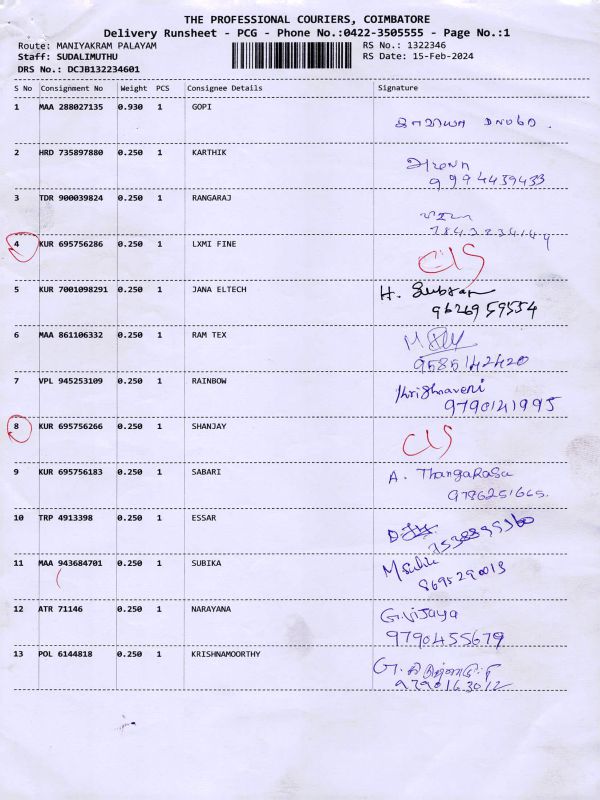 THE PROFESSIONAL COURIERS, COIMBATORE
Delivery Runsheet - PCG - Phone No.:0422-3505555 - Page No.:1
Route: MANIYAKRAM PALAYAM RS No.: 1322346
Staff: SUDALIMUTHU RS Date: 15-Feb-2024
DRS No.: DCJB132234601
S No Consignment No Weight PCS Consignee Details Signature
1 MAA 288027135 0.930 1 GOPI
2 HRD 735897880 0.250 1 KARTHIK
9994439433
3 TDR 900039824 0.250 1 RANGARAJ
4 KUR 695756286 0.250 1 LXMI FINE
5 KUR 7001098291 0.250 1 JANA ELTECH H.
9626959554
6 MAA 861106332 0.250 1 RAM TEX
9585142420
7 VPL 945253109 0.250 1 RAINBOW
9790141995
8 KUR 695756266 0.250 1 SHANJAY
9 KUR 695756183 0.250 1 SABARI A. Thangarasu
9786251665.
10 TRP 4913398 0.250 1 ESSAR
11 MAA 943684701 0.250 1 SUBIKA
8695290013
12 ATR 71146 0.250 1 NARAYANA G.vijaya
9790455679
13 POL 6144818 0.250 1 KRISHNAMOORTHY G.
9790163012